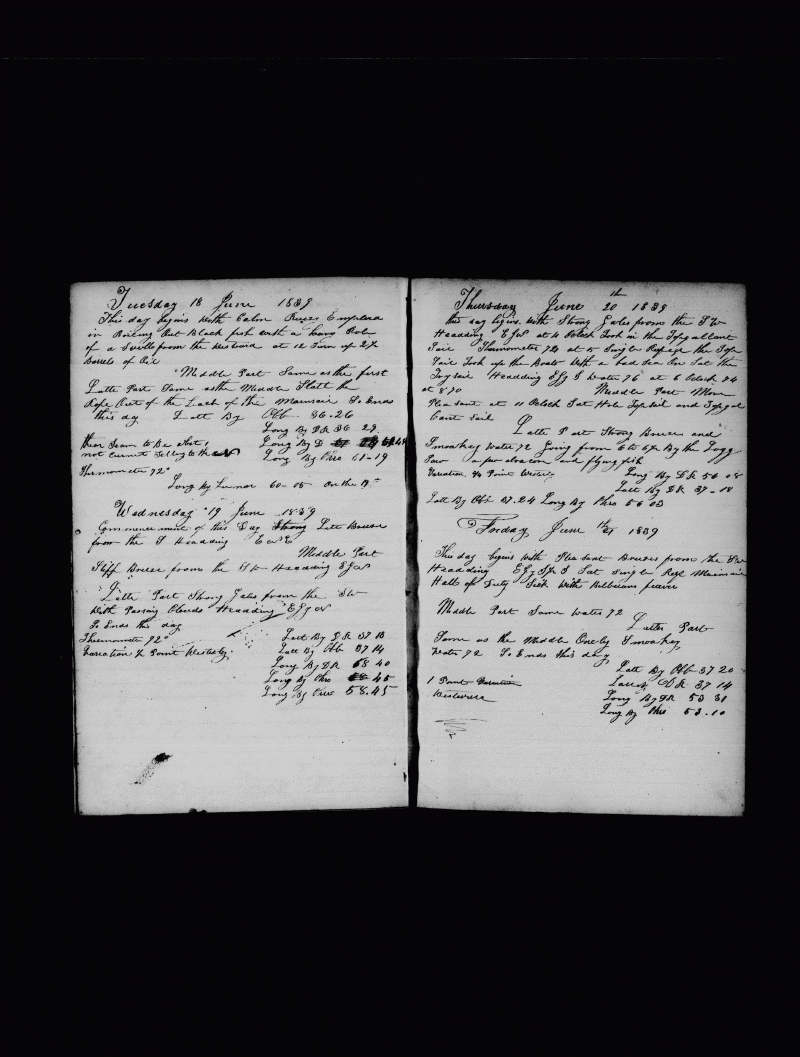 Tuesday 18 June 1839
This day begins with Calm Breeze Emploed
in Boiling Out Black fish with a heavy Role
of a Swell from the westward at 12 Turn up 2½
Barrels of Oil
Middle Part Same as the first
Latte Part Same as the Middle the
Rope Out of the Leach of the Mainsail So Ends
this day Latt By Obb 36-26
Long By D R 36 29
thear Seam to Be Long By D
not Current Long By Cro 61-19
Thermometer 72°
Long by Lunar 60-05 On the 19th
Wednesday 19 June 1839
Commencement of this Day Strong Latte Breese
from the S Headding E
Middle Part
Stiff Breese from the Headding
Latte Part Strong Gales from the SW
With Passing Clouds Headding
So Ends this day
Thermometer 72° Latt By D R 37 13
Varration ½ Point Westerly. Latt By Obb 37 14
Long By D R 58 40
Long By Chro 45
Long By 58.45
Thursday June 20th 1839
this day begins With Strong Gales from the SW
Headding at 4 Oclock Took in the Topgallant
Sail Thermometer 72 at 5 Single Reefe the Top
Sail Took up the Boats With a bad Sea On Sat the
Trysail Headding Water 76 at 6 Oclock 74
at 8 70 Middle Part More
Pleasant at 11 Oclock Sat Hole Topsail and Topgal
Cant Sail
Latte Part Strong Breese and
Smoakey Water 72 Going from 6 to 6½ By the Logg
Saw a few and flying fish
Variation ¾ Point Westerly Long By D R 56 08
Latt By D R 37-18
Latt By Obb 37.24 Long By Chro 56 03
Friday June 21 1839
This day begins with Pleasant Breeses from the SW
Headding Sat Single Reef Mainsail
Halls of Duty Sick With fever
Middle Part Same Water 72
Latter Part
Same as the Middle Only Smoakey
Water 72 So Ends this day
Latt By Obb 37 20
Latt By D R 37 14
1 Point Varration Long By D R 53 31
Westward Long By Chro 53.10